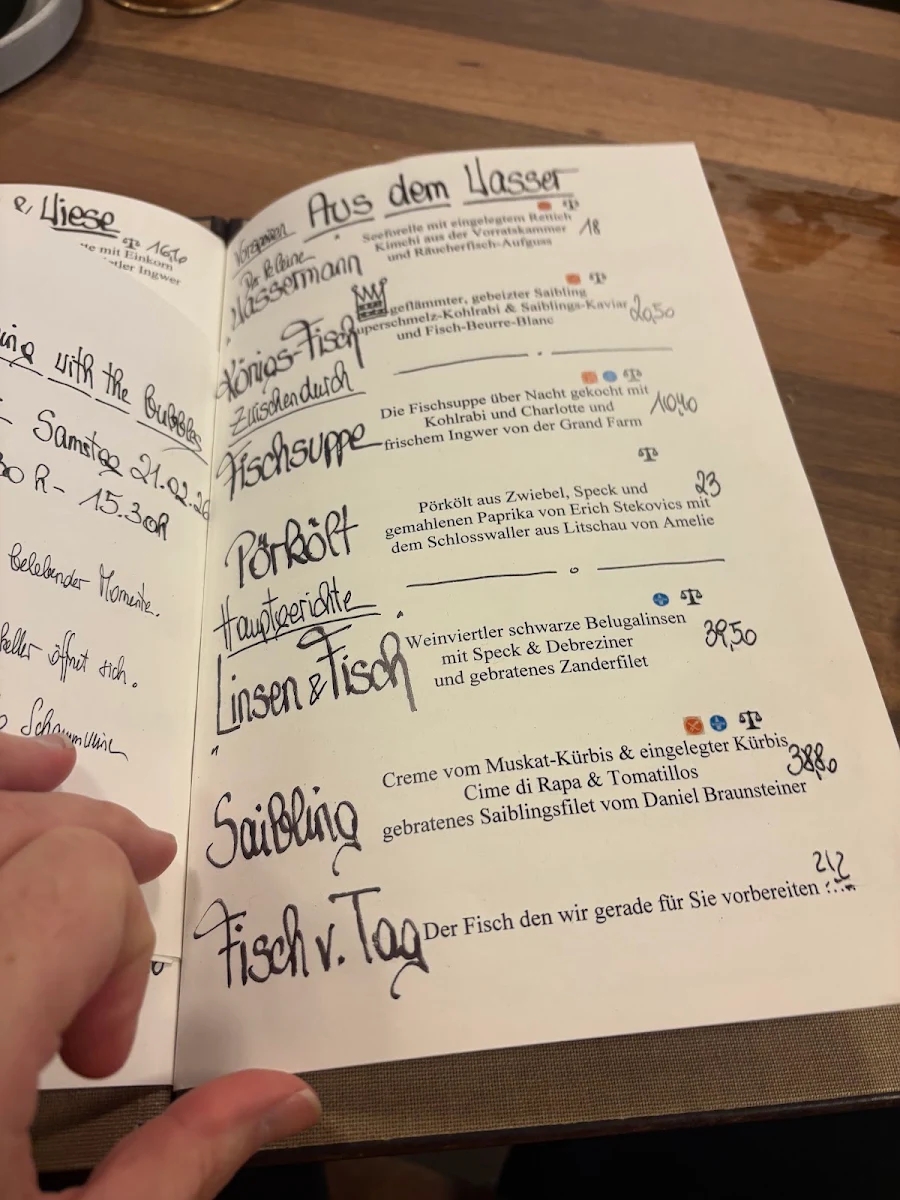 Wiese
16,10
mit Einkorn
Ingwer
with the Bubbles
Samstag 21.02.26
15.30h
belebender Momente.
öffnet sich.
Schaumwein
Aus dem Wasser
Vorspeisen
Der kleine
Wassermann
Seeforelle mit eingelegtem Rettich
Kimchi aus der Vorratskammer
und Räucherfisch-Aufguss
18
Königs-Fisch
geflämmter, gebeizter Saibling
uperschmelz-Kohlrabi & Saiblings-Kaviar
und Fisch-Beurre-Blanc
20,50
Zwischendurch
Fischsuppe
Die Fischsuppe über Nacht gekocht mit
Kohlrabi und Charlotte und
frischem Ingwer von der Grand Farm
10,40
Pörkölt
Pörkölt aus Zwiebel, Speck und
gemahlenen Paprika von Erich Stekovics mit
dem Schlosswaller aus Litschau von Amelie
23
Hauptgerichte
Linsen & Fisch
Weinviertler schwarze Belugalinsen
mit Speck & Debreziner
und gebratenes Zanderfilet
39,50
Saibling
Creme vom Muskat-Kürbis & eingelegter Kürbis
Cime di Rapa & Tomatillos
gebratenes Saiblingsfilet vom Daniel Braunsteiner
38,80
Fisch v. Tag
Der Fisch den wir gerade für Sie vorbereiten